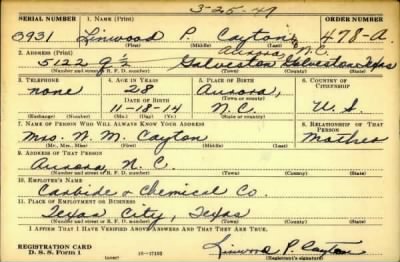 3-25-47
SERIAL NUMBER 1. NAME (Print) ORDER NUMBER
3931 Linwood P. Cayton 478-A
(First) (Middle) (Last)
2. ADDRESS (Print) Aurora, N.C.
5122 q½ Galveston Galveston Texas
(Number and street or R. F. D. number) (Town) (County) (State)
3. TELEPHONE 4. AGE IN YEARS 5. PLACE OF BIRTH 6. COUNTRY OF CITIZENSHIP
none 28 Aurora,
DATE OF BIRTH (Town or county)
11-18-14 N.C. U.S.
(Exchange) (Number) (Mo.) (Day) (Yr.) (State or country)
7. NAME OF PERSON WHO WILL ALWAYS KNOW YOUR ADDRESS 8. RELATIONSHIP OF THAT PERSON
Mrs. N. M. Cayton Mother
(Mr., Mrs., Miss) (First) (Middle) (Last)
9. ADDRESS OF THAT PERSON
Aurora, N.C.
(Number and street or R. F. D. number) (Town) (County) (State)
10. EMPLOYER'S NAME
Carbide & Chemical Co.
11. PLACE OF EMPLOYMENT OR BUSINESS
Texas City, Texas
(Number and street or R. F. D. number) (Town) (County) (State)
I AFFIRM THAT I HAVE VERIFIED ABOVE ANSWERS AND THAT THEY ARE TRUE.
REGISTRATION CARD
D. S. S. Form 1 16-17105 Linwood P. Cayton
(over) (Registrant's signature)